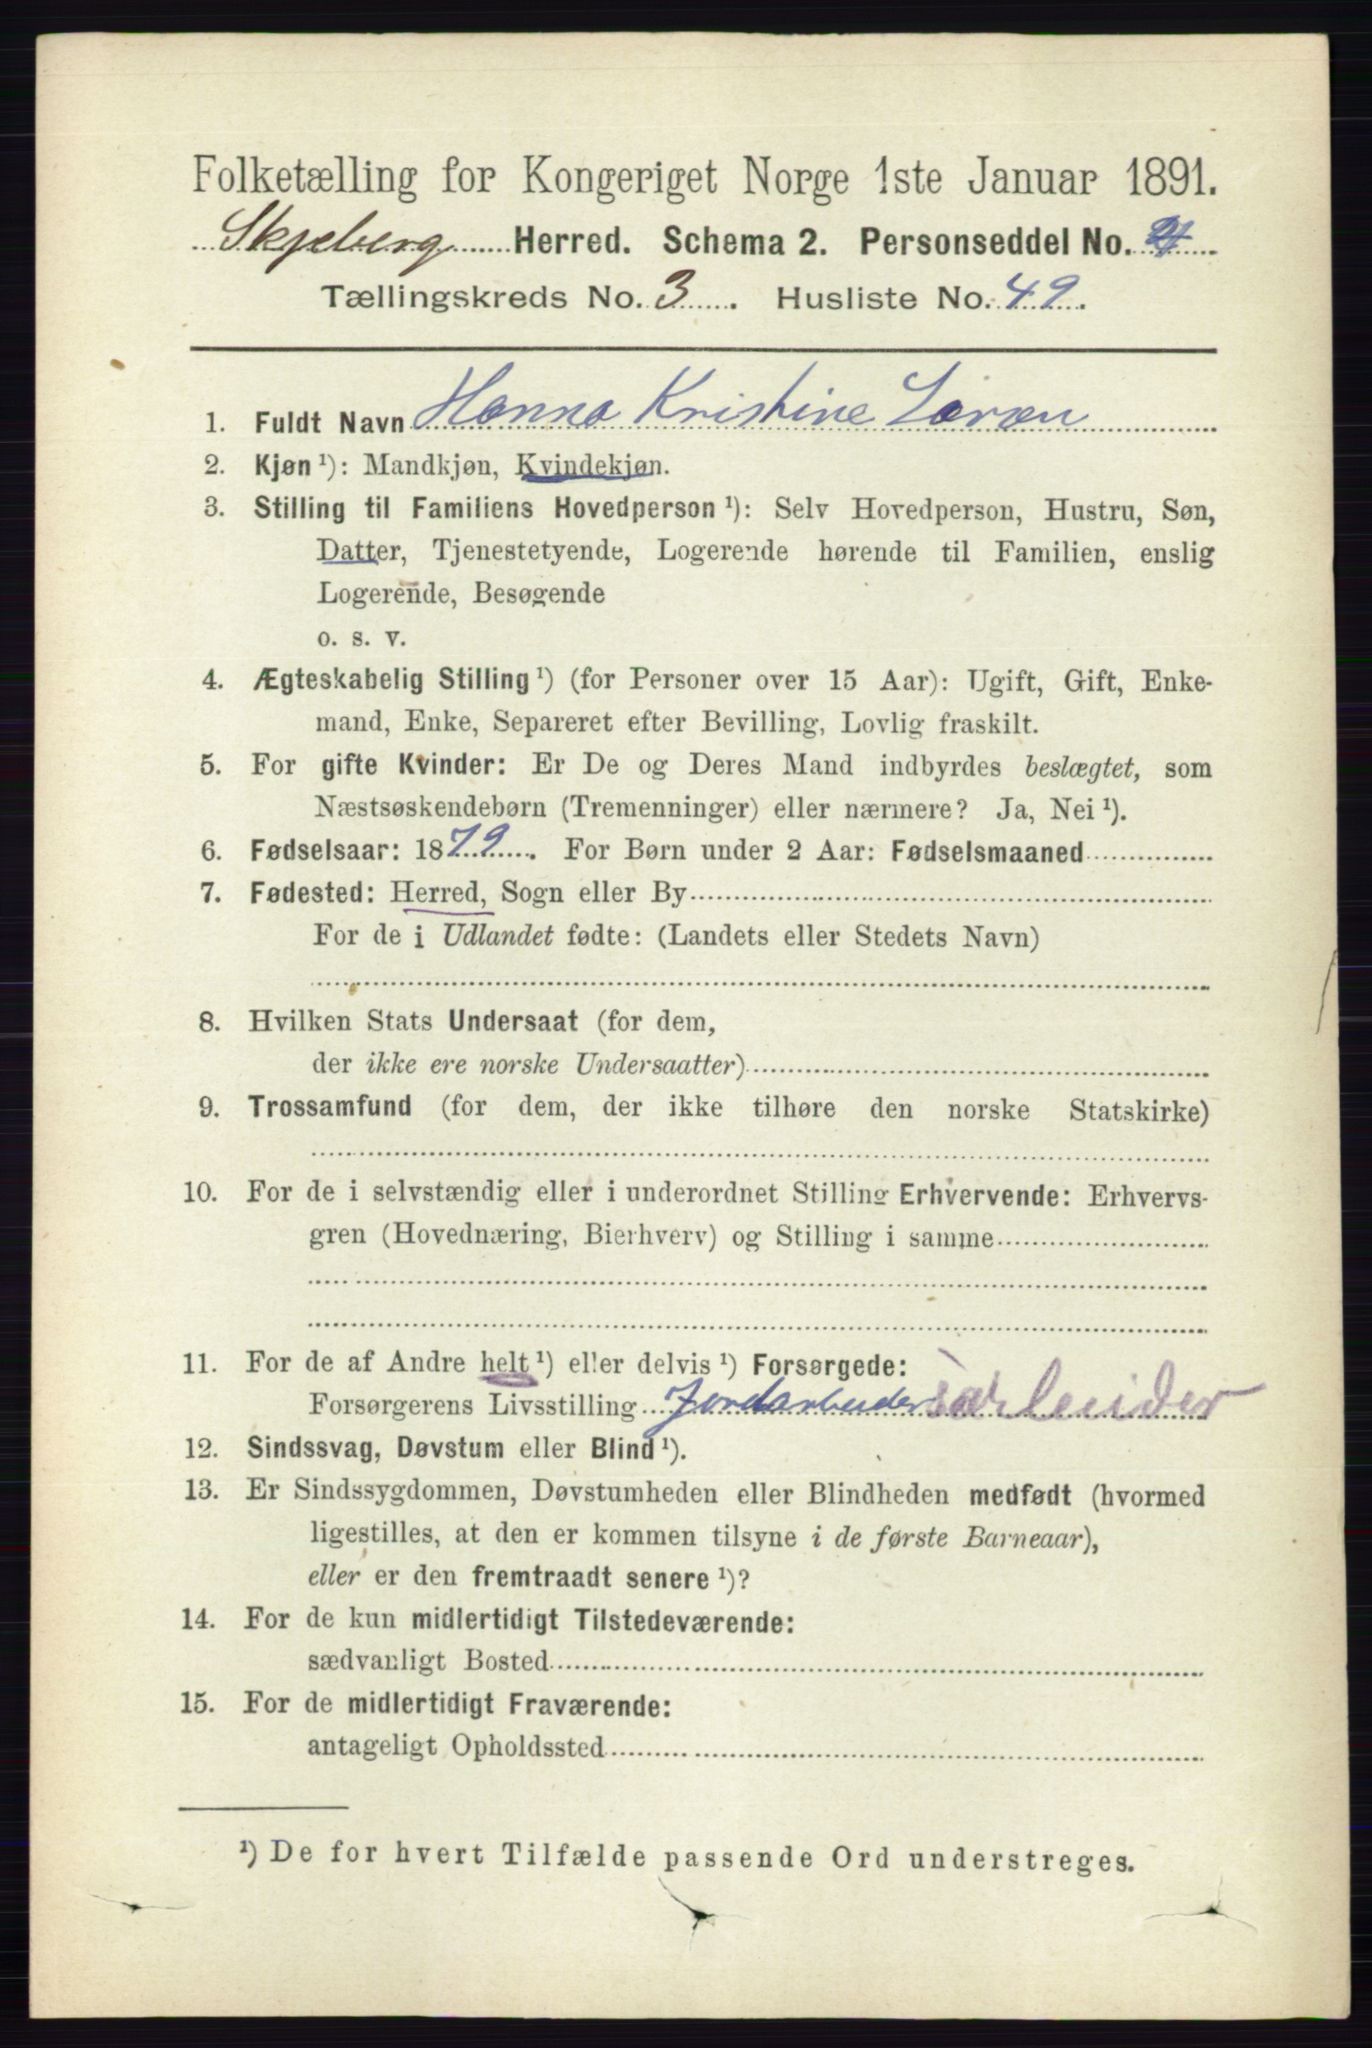 Folketælling for Kongeriget Norge 1ste Januar 1891.
Skjeberg Herred. Schema 2. Personseddel No.
Tællingskreds No. 3. Husliste No. 49.
1. Fuldt Navn Hanna Kristine
2. Kjøn ¹): Mandkjøn, Kvindekjøn.
3. Stilling til Familiens Hovedperson ¹): Selv Hovedperson, Hustru, Søn,
Datter, Tjenestetyende, Logerende hørende til Familien, enslig
Logerende, Besøgende
o. s. v.
4. Ægteskabelig Stilling ¹) (for Personer over 15 Aar): Ugift, Gift, Enke-
mand, Enke, Separeret efter Bevilling, Lovlig fraskilt.
5. For gifte Kvinder: Er De og Deres Mand indbyrdes beslægtet, som
Næstsøskendebørn (Tremenninger) eller nærmere? Ja, Nei ¹).
6. Fødselsaar: 1879. For Børn under 2 Aar: Fødselsmaaned
7. Fødested: Herred, Sogn eller By
For de i Udlandet fødte: (Landets eller Stedets Navn)
8. Hvilken Stats Undersaat (for dem,
der ikke ere norske Undersaatter)
9. Trossamfund (for dem, der ikke tilhøre den norske Statskirke)
10. For de i selvstændig eller i underordnet Stilling Erhvervende: Erhvervs-
gren (Hovednæring, Bierhverv) og Stilling i samme
11. For de af Andre helt ¹) eller delvis ¹) Forsørgede:
Forsørgerens Livsstilling Jordarbeider
12. Sindssvag, Døvstum eller Blind ¹).
13. Er Sindssygdommen, Døvstumheden eller Blindheden medfødt (hvormed
ligestilles, at den er kommen tilsyne i de første Barneaar),
eller er den fremtraadt senere ¹)?
14. For de kun midlertidigt Tilstedeværende:
sædvanligt Bosted
15. For de midlertidigt Fraværende:
antageligt Opholdssted
¹) De for hvert Tilfælde passende Ord understreges.